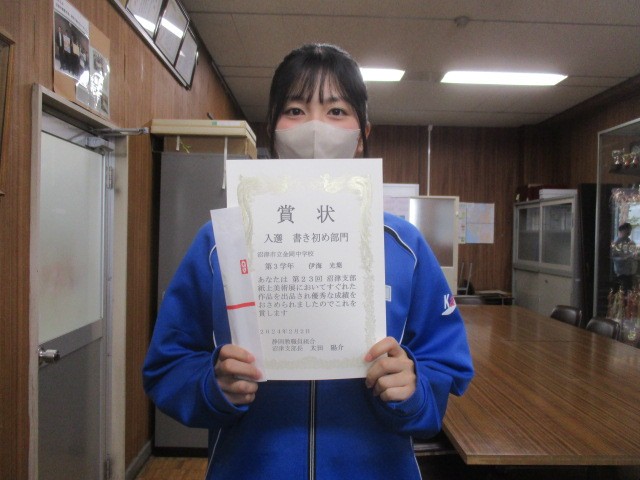 賞　状
入選　書き初め部門
沼津市立金岡中学校
第３学年　伊海
あなたは第２３回沼津支部
紙上美術展においてすぐれた
作品を出品され優秀な成績を
おさめられましたのでこれを
賞します
静岡教職員組合
沼津支部長　太田